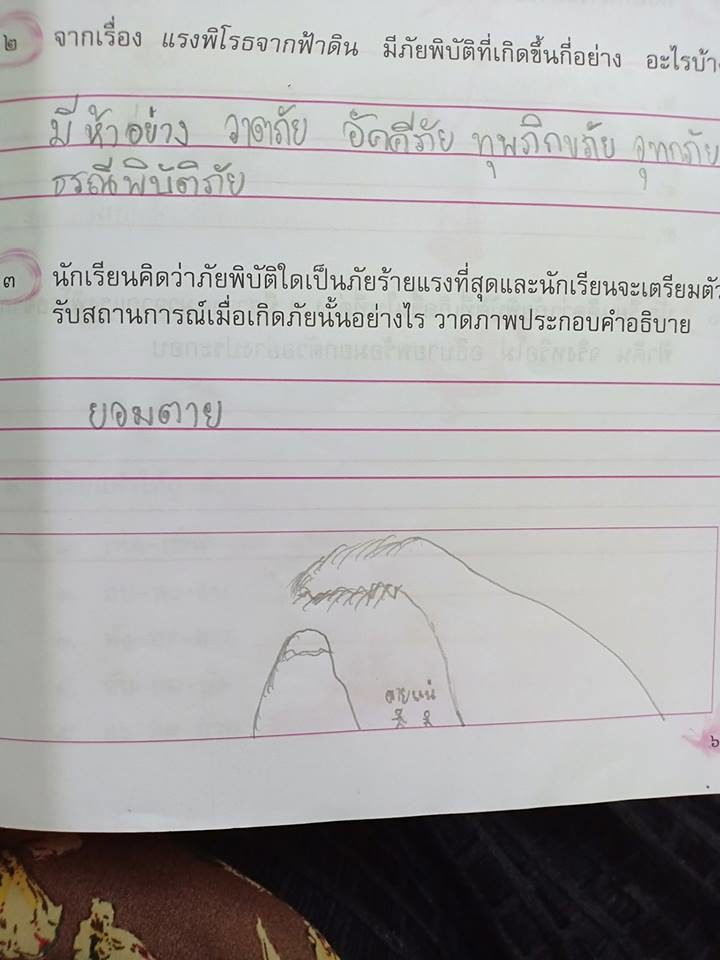 ๒ จากเรื่อง แรงพิโรธจากฟ้าดิน มีภัยพิบัติที่เกิดขึ้นกี่อย่าง อะไรบ้าง
มี ห้าอย่าง วาตภัย อัคคีภัย ทุพภิกขภัย อุทกภัย
ธรณีพิบัติภัย
๓ นักเรียนคิดว่าภัยพิบัติใดเป็นภัยร้ายแรงที่สุดและนักเรียนจะเตรียมตัว
รับสถานการณ์เมื่อเกิดภัยนั้นอย่างไร วาดภาพประกอบคำอธิบาย
ยอมตาย
ตายแน่
๖